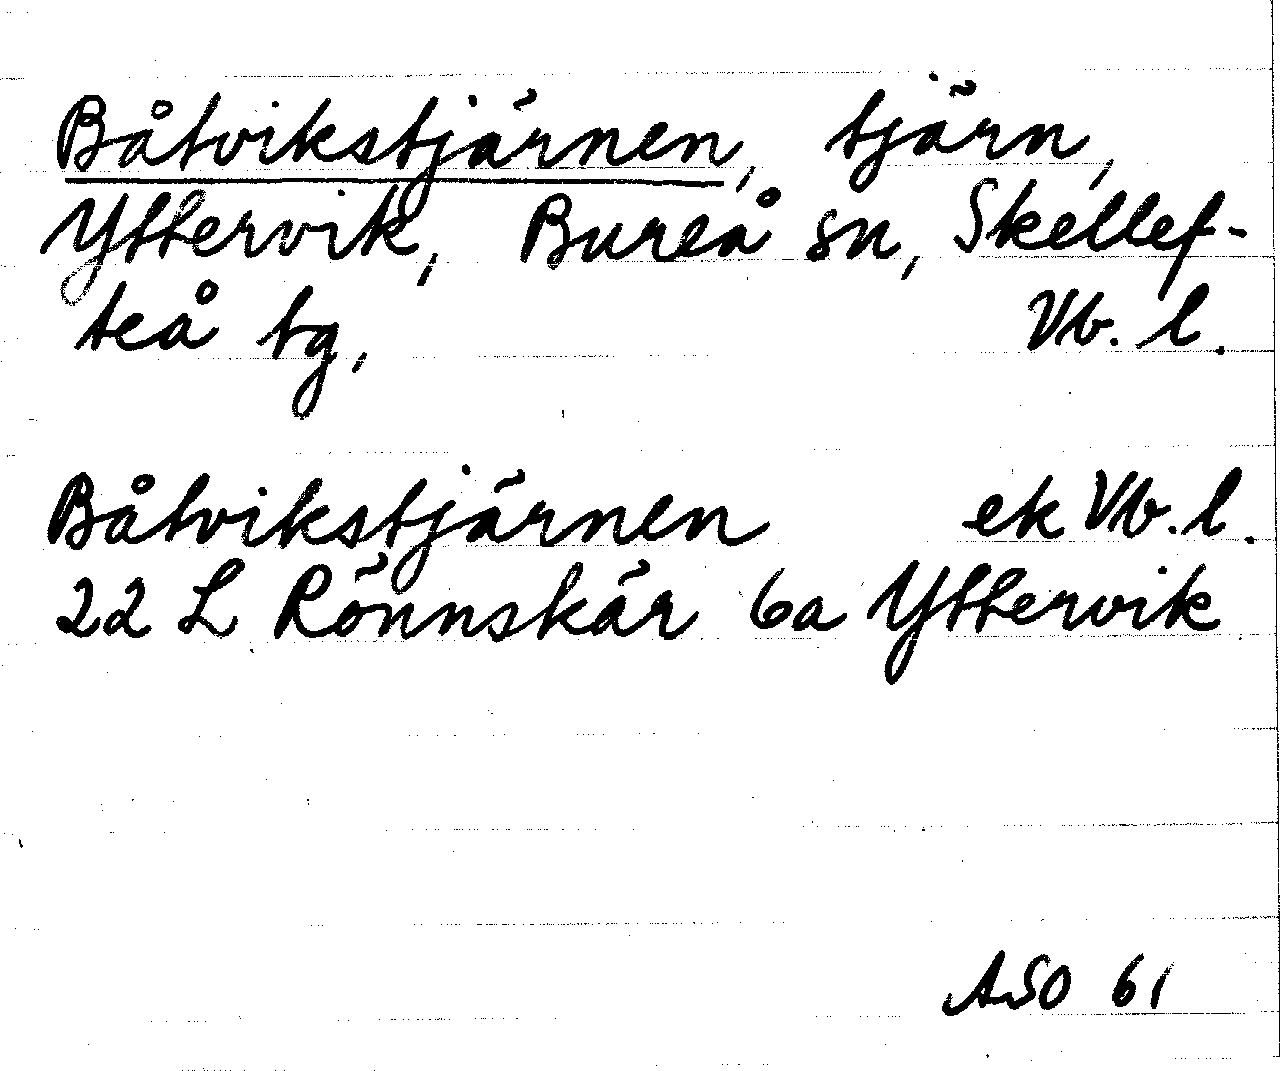 Båtvikstjärnen, tjärn,
Yttervik, Bureå sn, Skellef-
teå tg, Vb. l.
Båtvikstjärnen ek Vb. l.
22 L Rönnskär 6a Yttervik
ASO 61